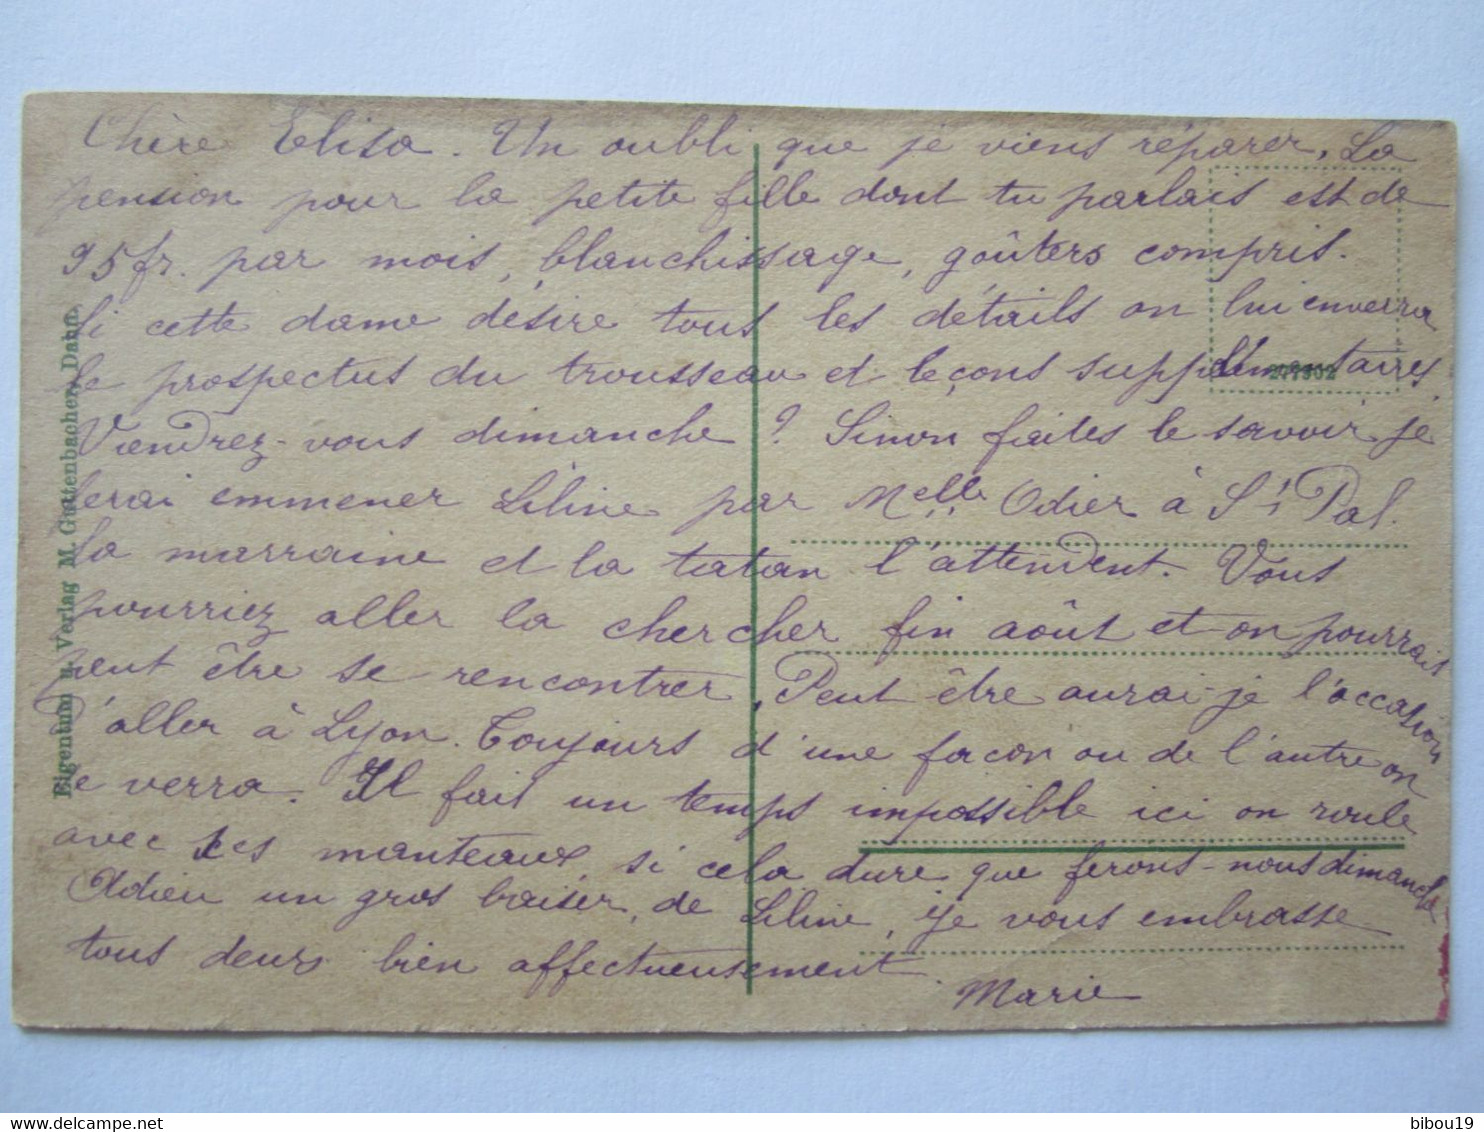 Chère Elisa. Un oubli que je viens réparer, La
pension pour la petite fille dont tu parlais est de
95 fr. par mois, blanchissage, goûters compris.
Si cette dame désire tous les détails on lui enverra
le prospectus du trousseau et leçons supplémentaires.
Viendrez-vous dimanche ? Sinon faites le savoir je
ferai emmener Liline par Melle Odier à St Pal.
La marraine et la tatan l'attendent. Vous
pourriez aller la chercher fin août et on pourrait
peut être se rencontrer, Peut être aurai-je l'occasion
d'aller à Lyon. Toujours d'une facon ou de l'autre on
se verra. Il fait un temps impossible ici on roule
avec les manteaux, si cela dure que ferons-nous dimanche
Adieu un gros baiser, de Liline, je vous embrasse
tous deux bien affectueusement
Marie
Eigentum u. Verlag M. Guttenbacher, Dahn.
247302
bibou19
delcampe.net